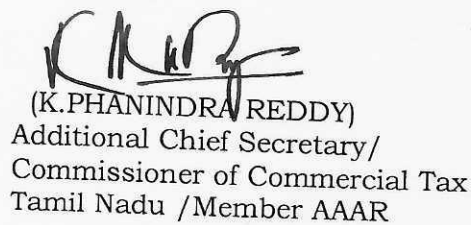 (K.PHANINDRA REDDY)
Additional Chief Secretary/
Commissioner of Commercial Tax
Tamil Nadu /Member AAAR